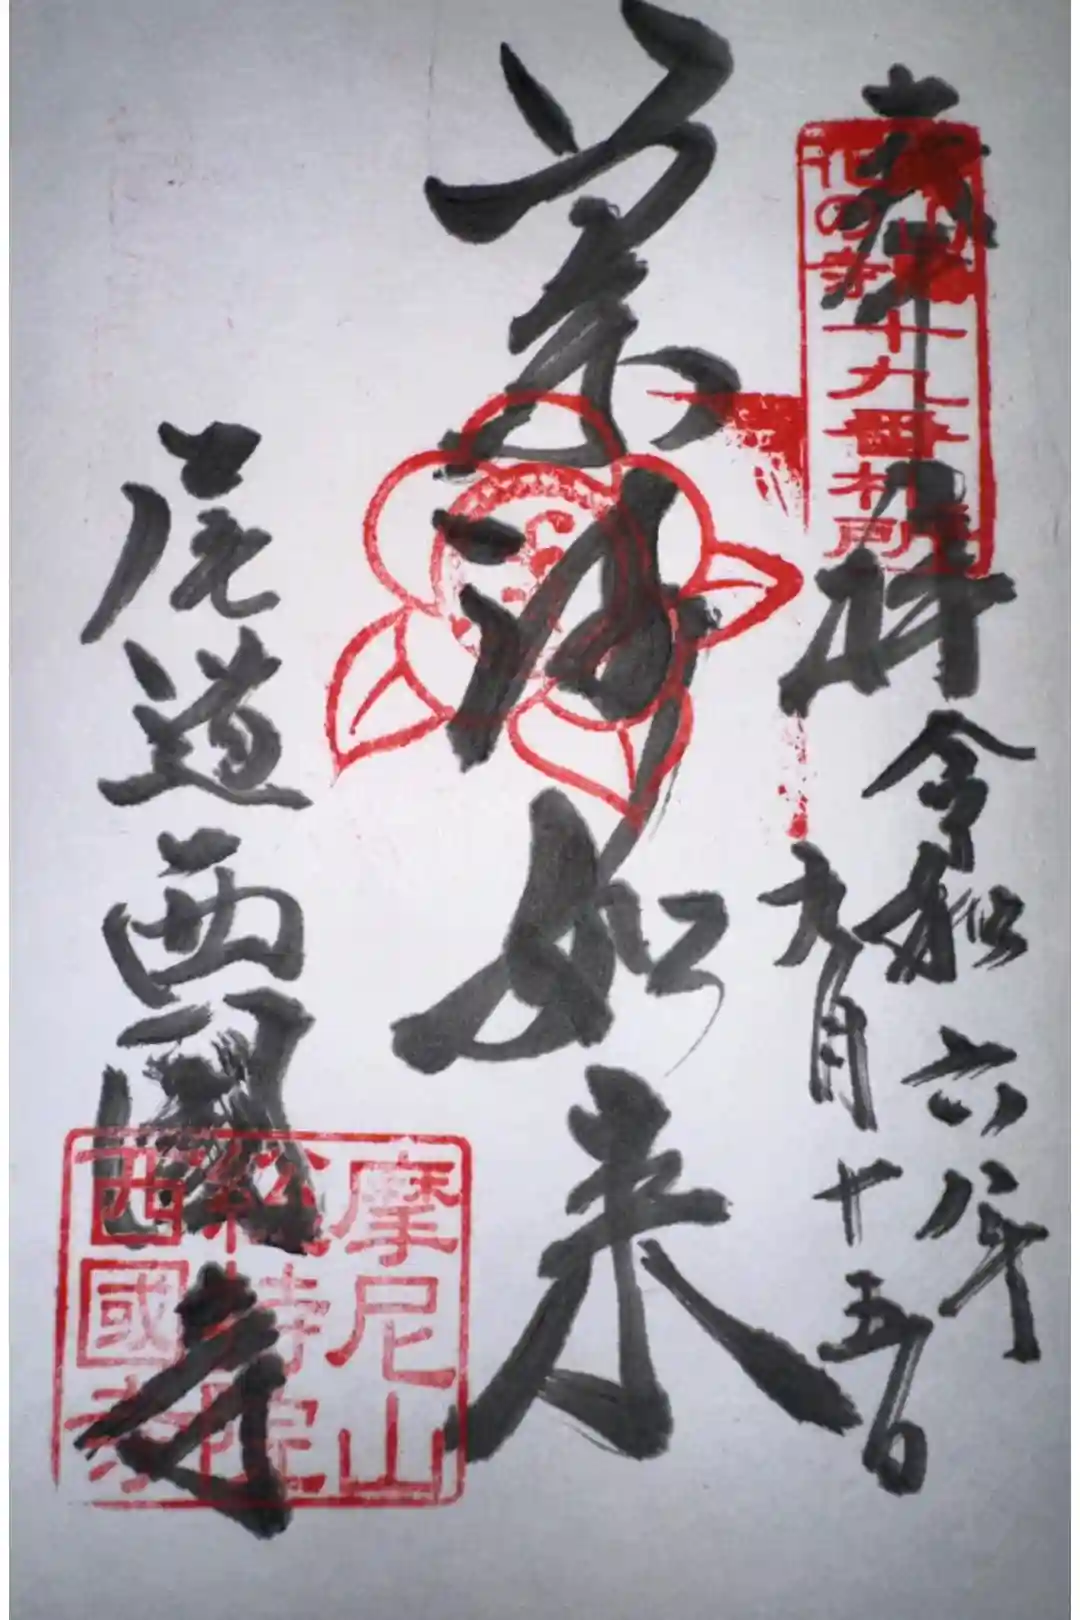 奉拝
令和六年
九月十五日
山陽
花の寺
十九番札所
薬師如来
尾道西國寺
摩尼山
総持院
西國寺